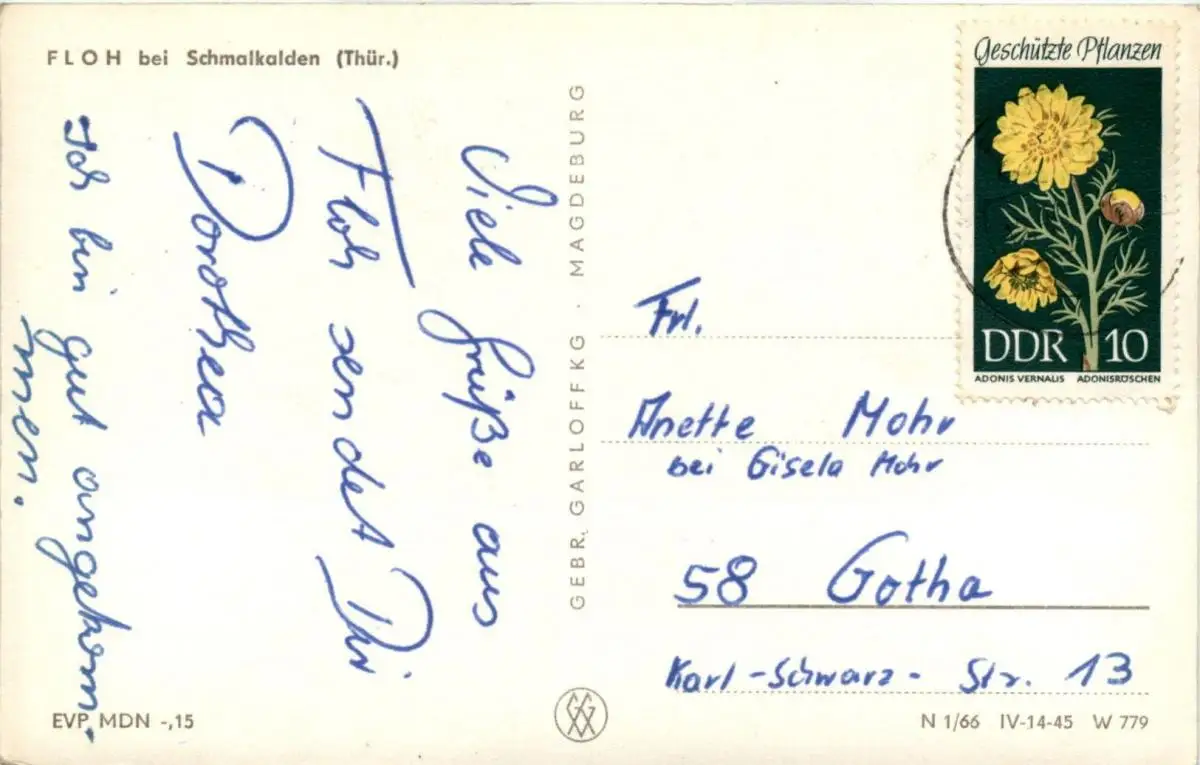 FLOH bei Schmalkalden (Thür.)
Viele Grüße aus
Floh sendet Dir
Dorothea
Ich bin gut angekom-
men.
EVP MDN -,15
GEBR. GARLOFF KG · MAGDEBURG
Geschützte Pflanzen
DDR 10
ADONIS VERNALIS ADONISRÖSCHEN
Frl.
Anette Mohr
bei Gisela Mohr
58 Gotha
Karl-Schwarz-Str. 13
N 1/66 IV-14-45 W 779